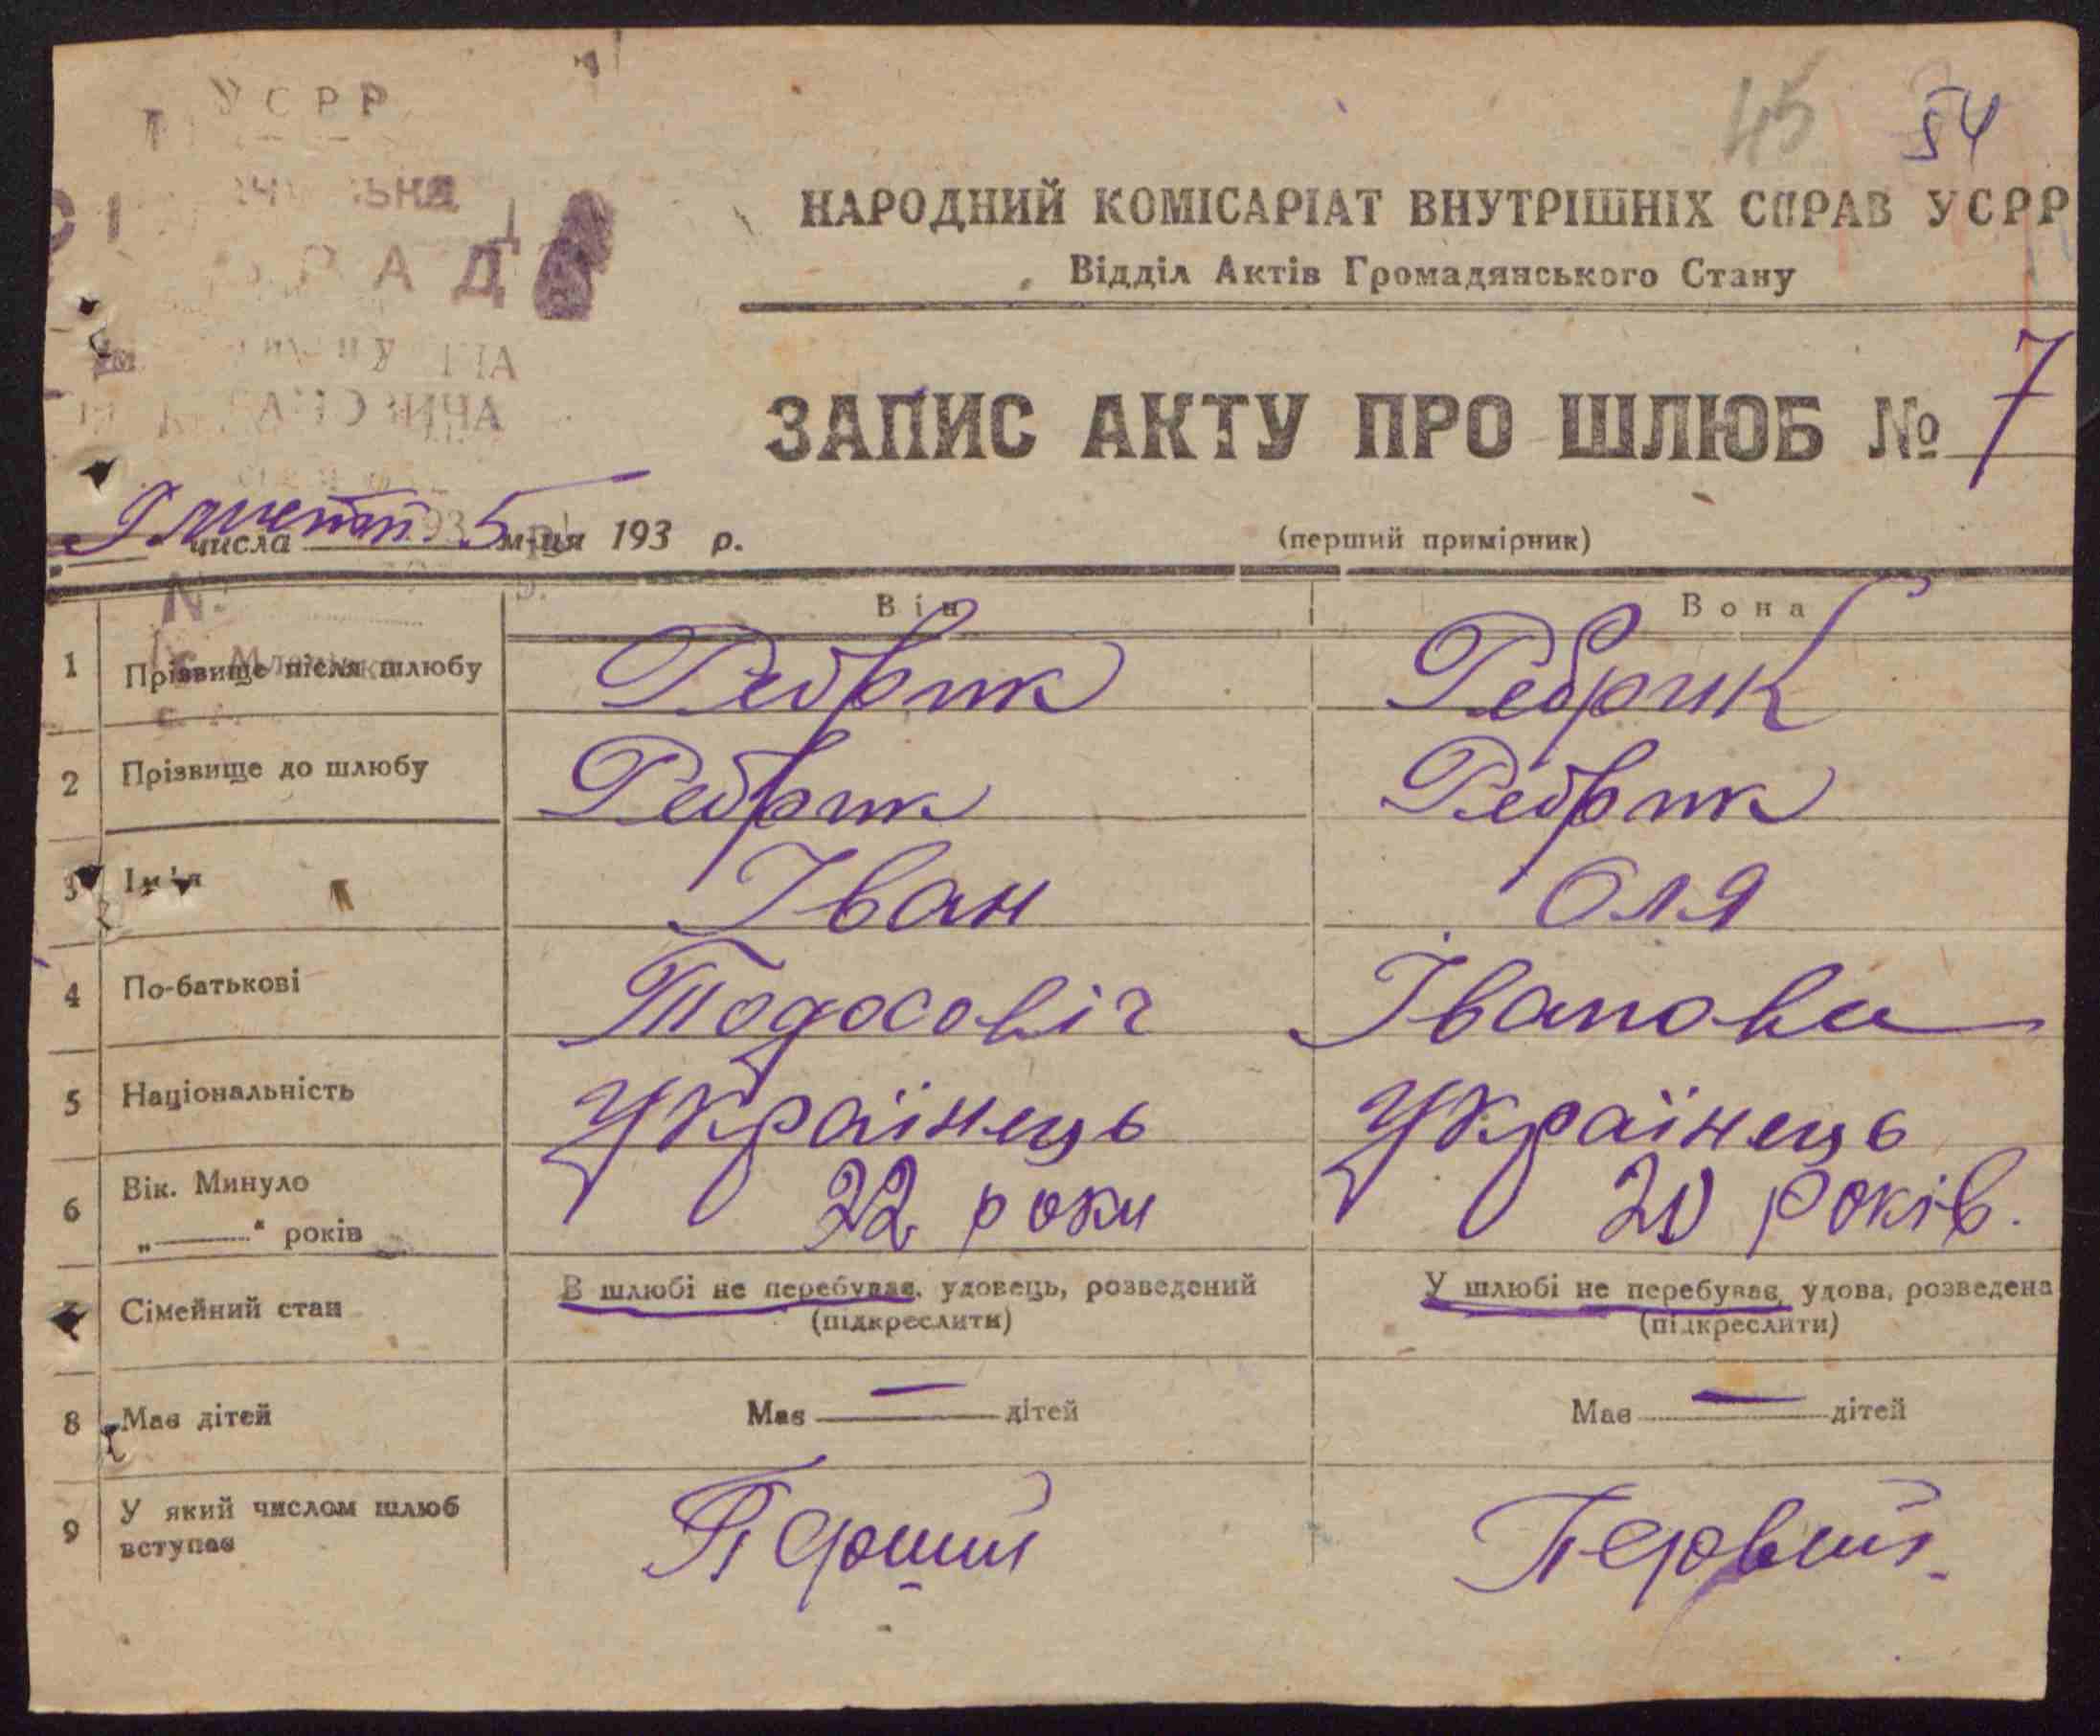 УСРР
РАД
45 54
НАРОДНИЙ КОМІСАРІАТ ВНУТРІШНІХ СПРАВ УСРР
Відділ Актів Громадянського Стану
ЗАПИС АКТУ ПРО ШЛЮБ № 7
числа 5 м-ця 193 р.
(перший примірник)
Він Вона
1 Прізвище після шлюбу Ребрик Ребрик
2 Прізвище до шлюбу Ребрик Ребрик
3 Ім'я Іван Оля
4 По-батькові Тодосовіч Іванова
5 Національність Українець Українець
6 Вік. Минуло 22 роки 20 років.
„——" років
7 Сімейний стан В шлюбі не перебуває, удовець, розведений У шлюбі не перебуває, удова, розведена
(підкреслити) (підкреслити)
8 Має дітей Має — дітей Має — дітей
9 У який числом шлюб вступає Перший Первий.